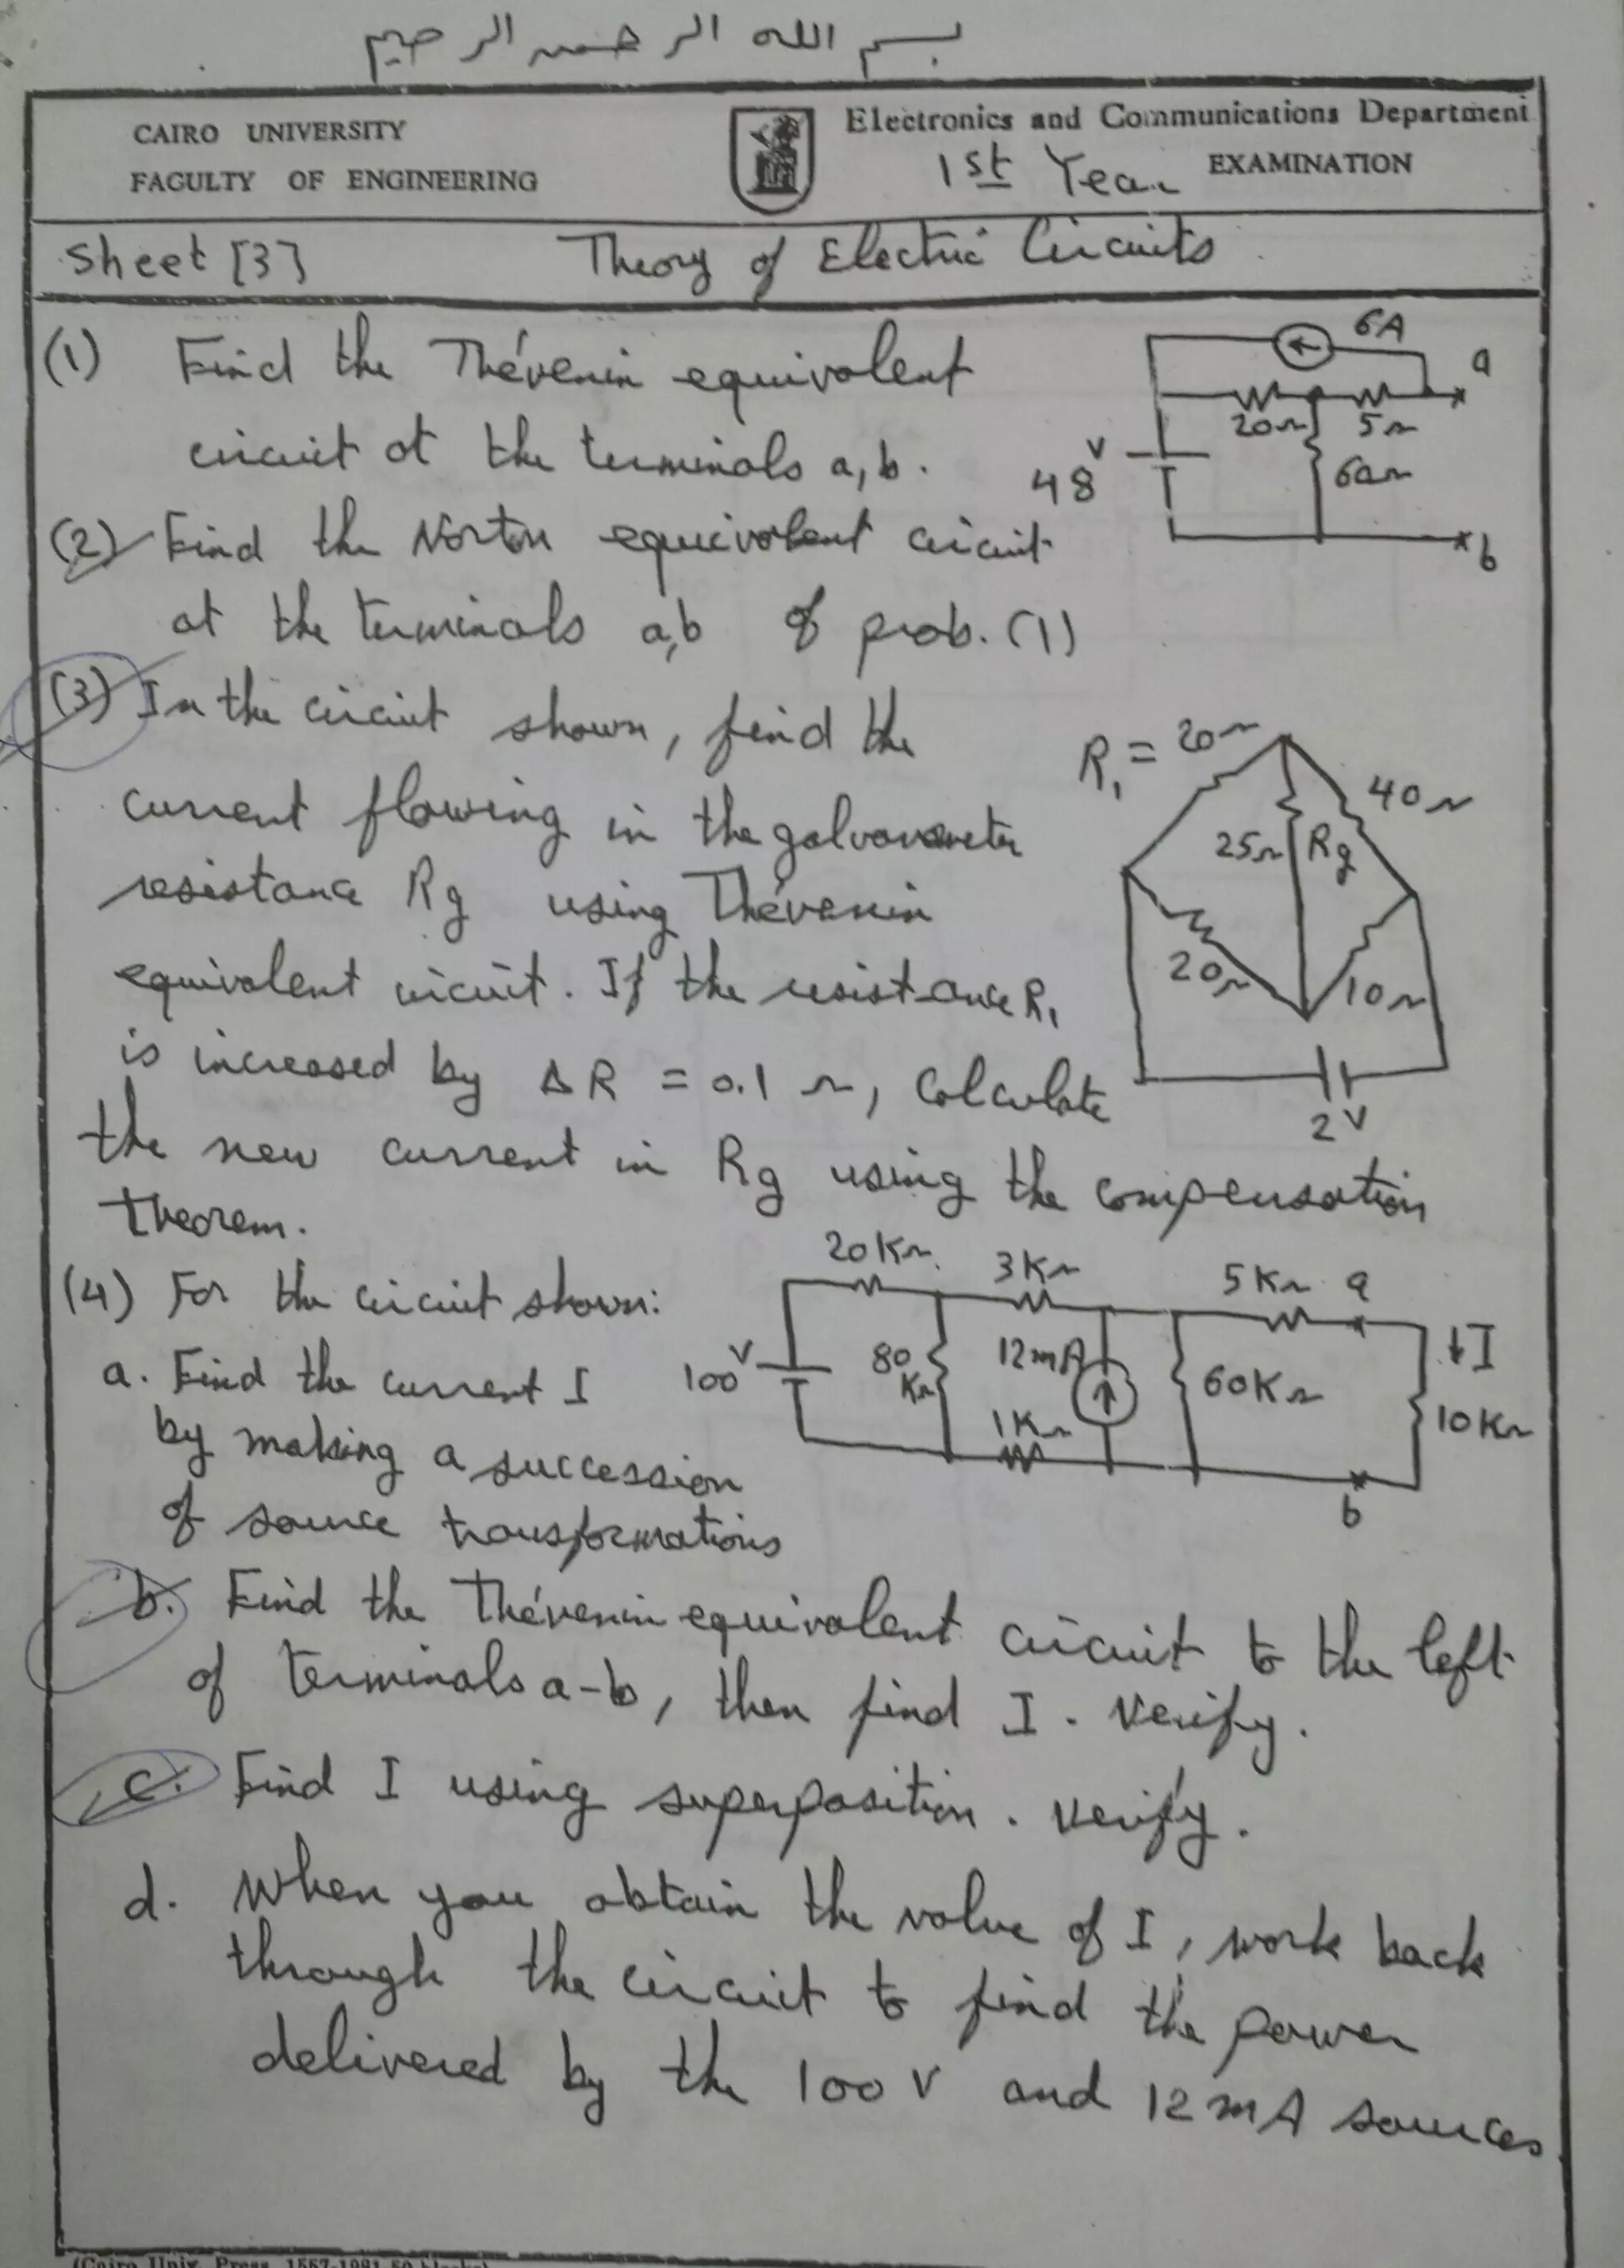 بسم الله الرحمن الرحيم
CAIRO UNIVERSITY
FACULTY OF ENGINEERING
Electronics and Communications Department
1st Year EXAMINATION
Sheet [3] Theory of Electric Circuits
(1) Find the Thévenin equivalent
circuit at the terminals a, b.
6A
a
20Ω 5Ω
48 V
60Ω
b
(2) Find the Norton equivalent circuit
at the terminals a,b of prob. (1)
(3) In the circuit shown, find the
current flowing in the galvanometer
resistance Rg using Thévenin
equivalent circuit. If the resistance R1
is increased by ΔR = 0.1 Ω, calculate
the new current in Rg using the compensation
theorem.
R1 = 20Ω
40Ω
25Ω Rg
20Ω
10Ω
2V
(4) For the circuit shown:
a. Find the current I
by making a succession
of source transformations
20KΩ
3KΩ
5KΩ a
100 V
80 KΩ
12mA
60KΩ
↓I
10KΩ
1KΩ
b
b. Find the Thévenin equivalent circuit to the left
of terminals a-b, then find I. Verify.
c. Find I using superposition. Verify.
d. When you obtain the value of I, work back
through the circuit to find the power
delivered by the 100 V and 12 mA sources
(Cairo Univ. Press 1557-1981 50 blocks)